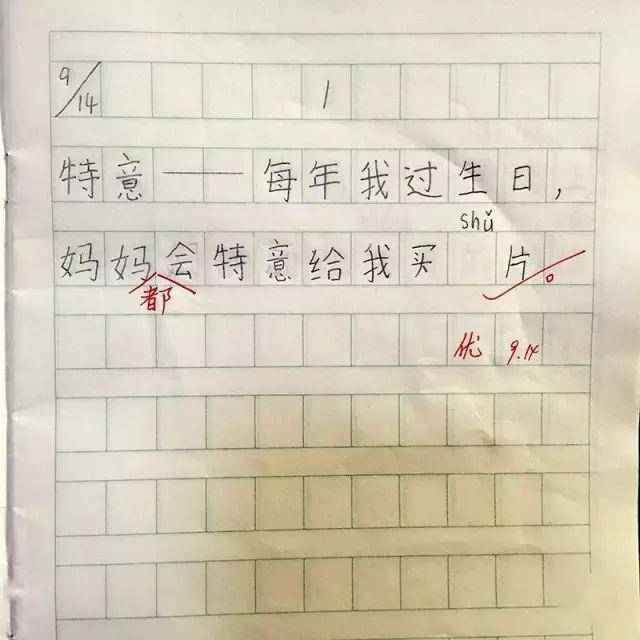 9/14 1
特意——每年我过生日，
shǔ
妈妈会特意给我买 片。
都
优 9.14